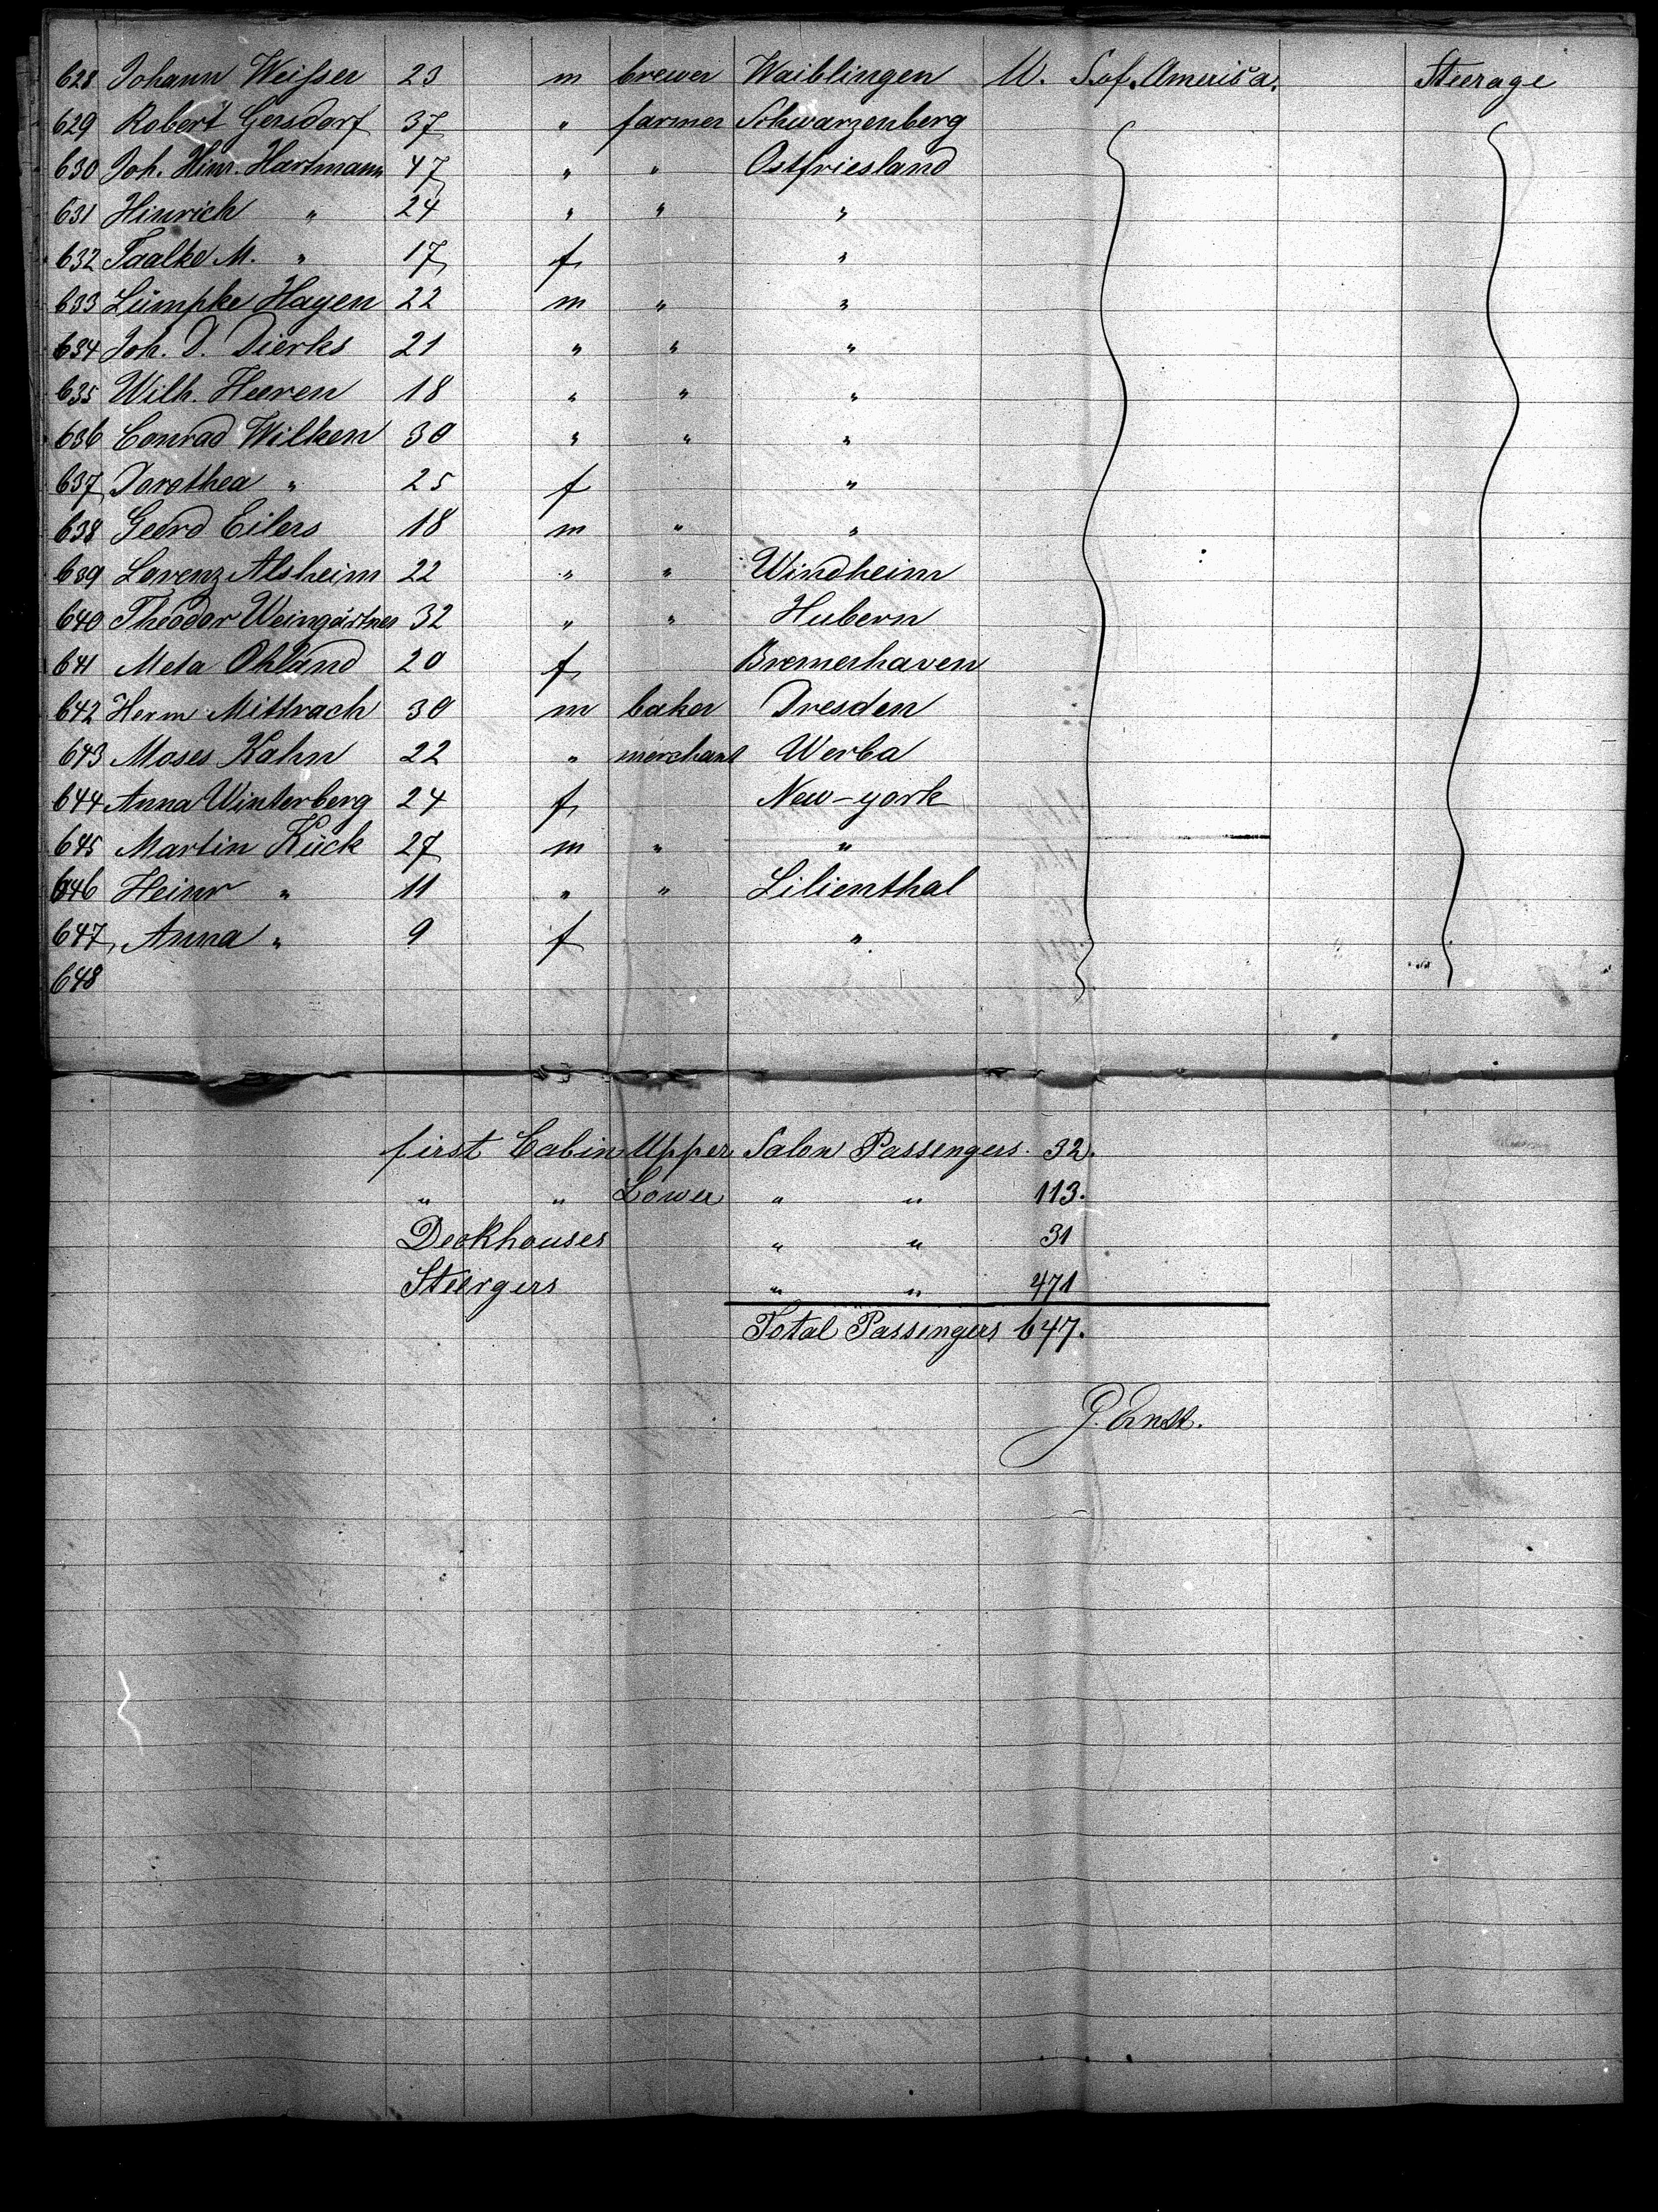 628 Johann Weisser 23 m brewer Waiblingen U. S. of. America. Steerage
629 Robert Gersdorf 37 " farmer Schwarzenberg
630 Joh. Hinr. Hartmann 47 " " Ostfriesland
631 Hinrich " 24 " " "
632 Taalke M. " 17 f "
633 Lümpke Hayen 22 m " "
634 Joh. D. Dierks 21 " " "
635 Wilh. Heeren 18 " " "
636 Conrad Wilken 30 " " "
637 Dorothea " 25 f "
638 Geerd Eilers 18 m " "
639 Lorenz Alsheim 22 " " Windheim
640 Theodor Weingärtner 32 " " Hubern
641 Meta Ohland 20 f Bremerhaven
642 Herm Mittrach 30 m baker Dresden
643 Moses Kahn 22 " merchant Werba
644 Anna Winterberg 24 f New-york
645 Martin Kück 27 m " "
646 Heinr " 11 " " Lilienthal
647 Anna " 9 f "
648
first Cabin Upper Salon Passengers. 32.
" " Lower " " 113.
Deckhouses " " 31
Steergers " " 471
Total Passengers 647.
P. Ernst.